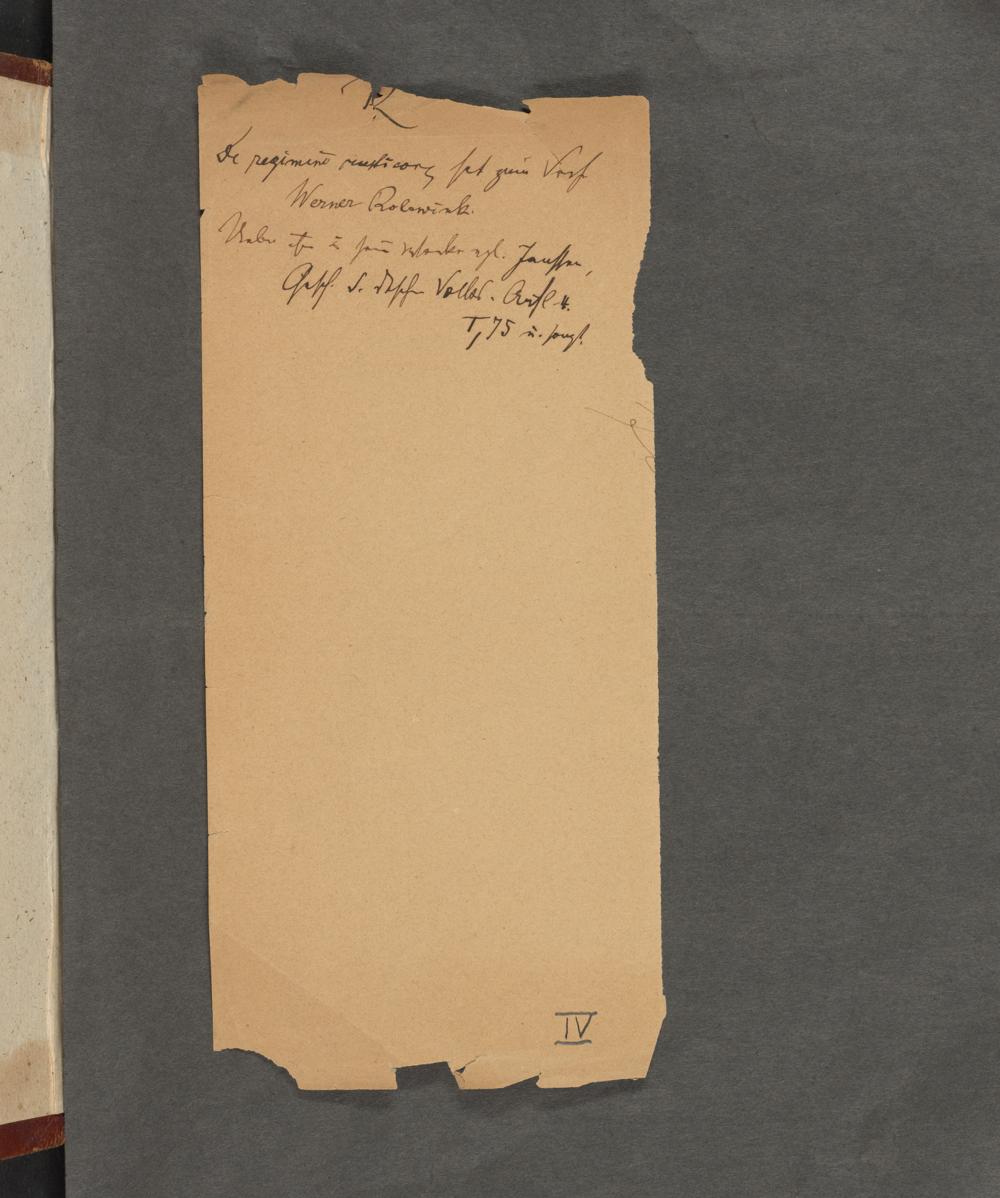 De regimine rusticorum hat zum Verf.
Werner Rolewink.
Ueber ihn u. seine Werke vgl. Janssen,
Gesch. d. dtschn Volkes. Aufl. 4.
I, 75 u. sonst.
IV